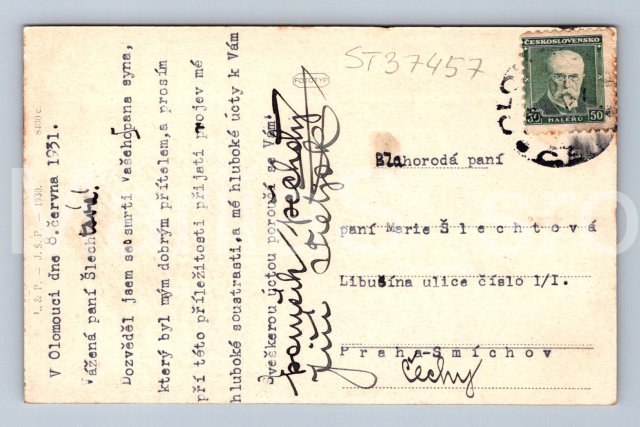 V Olomouci dne 8.června 1931.
Vážená paní Šlechtová!
Dozvěděl jsem se o smrti Vašeho pana syna,
který byl mým dobrým přítelem, a prosím
při této příležitosti přijati projev mé
hluboké soustrasti, a mé hluboké úcty k Vám
Sveškerou úctou poroučí se Vám:
Jiří
L. & P. — J.Š.P. — 1930.
FOTOTYP
ST37457
ČESKOSLOVENSKO
50 HALÉŘŮ 50
Blahorodá paní
paní Marie Šlechtová
Libušina ulice číslo 1/I.
Praha-Smíchov
Čechy